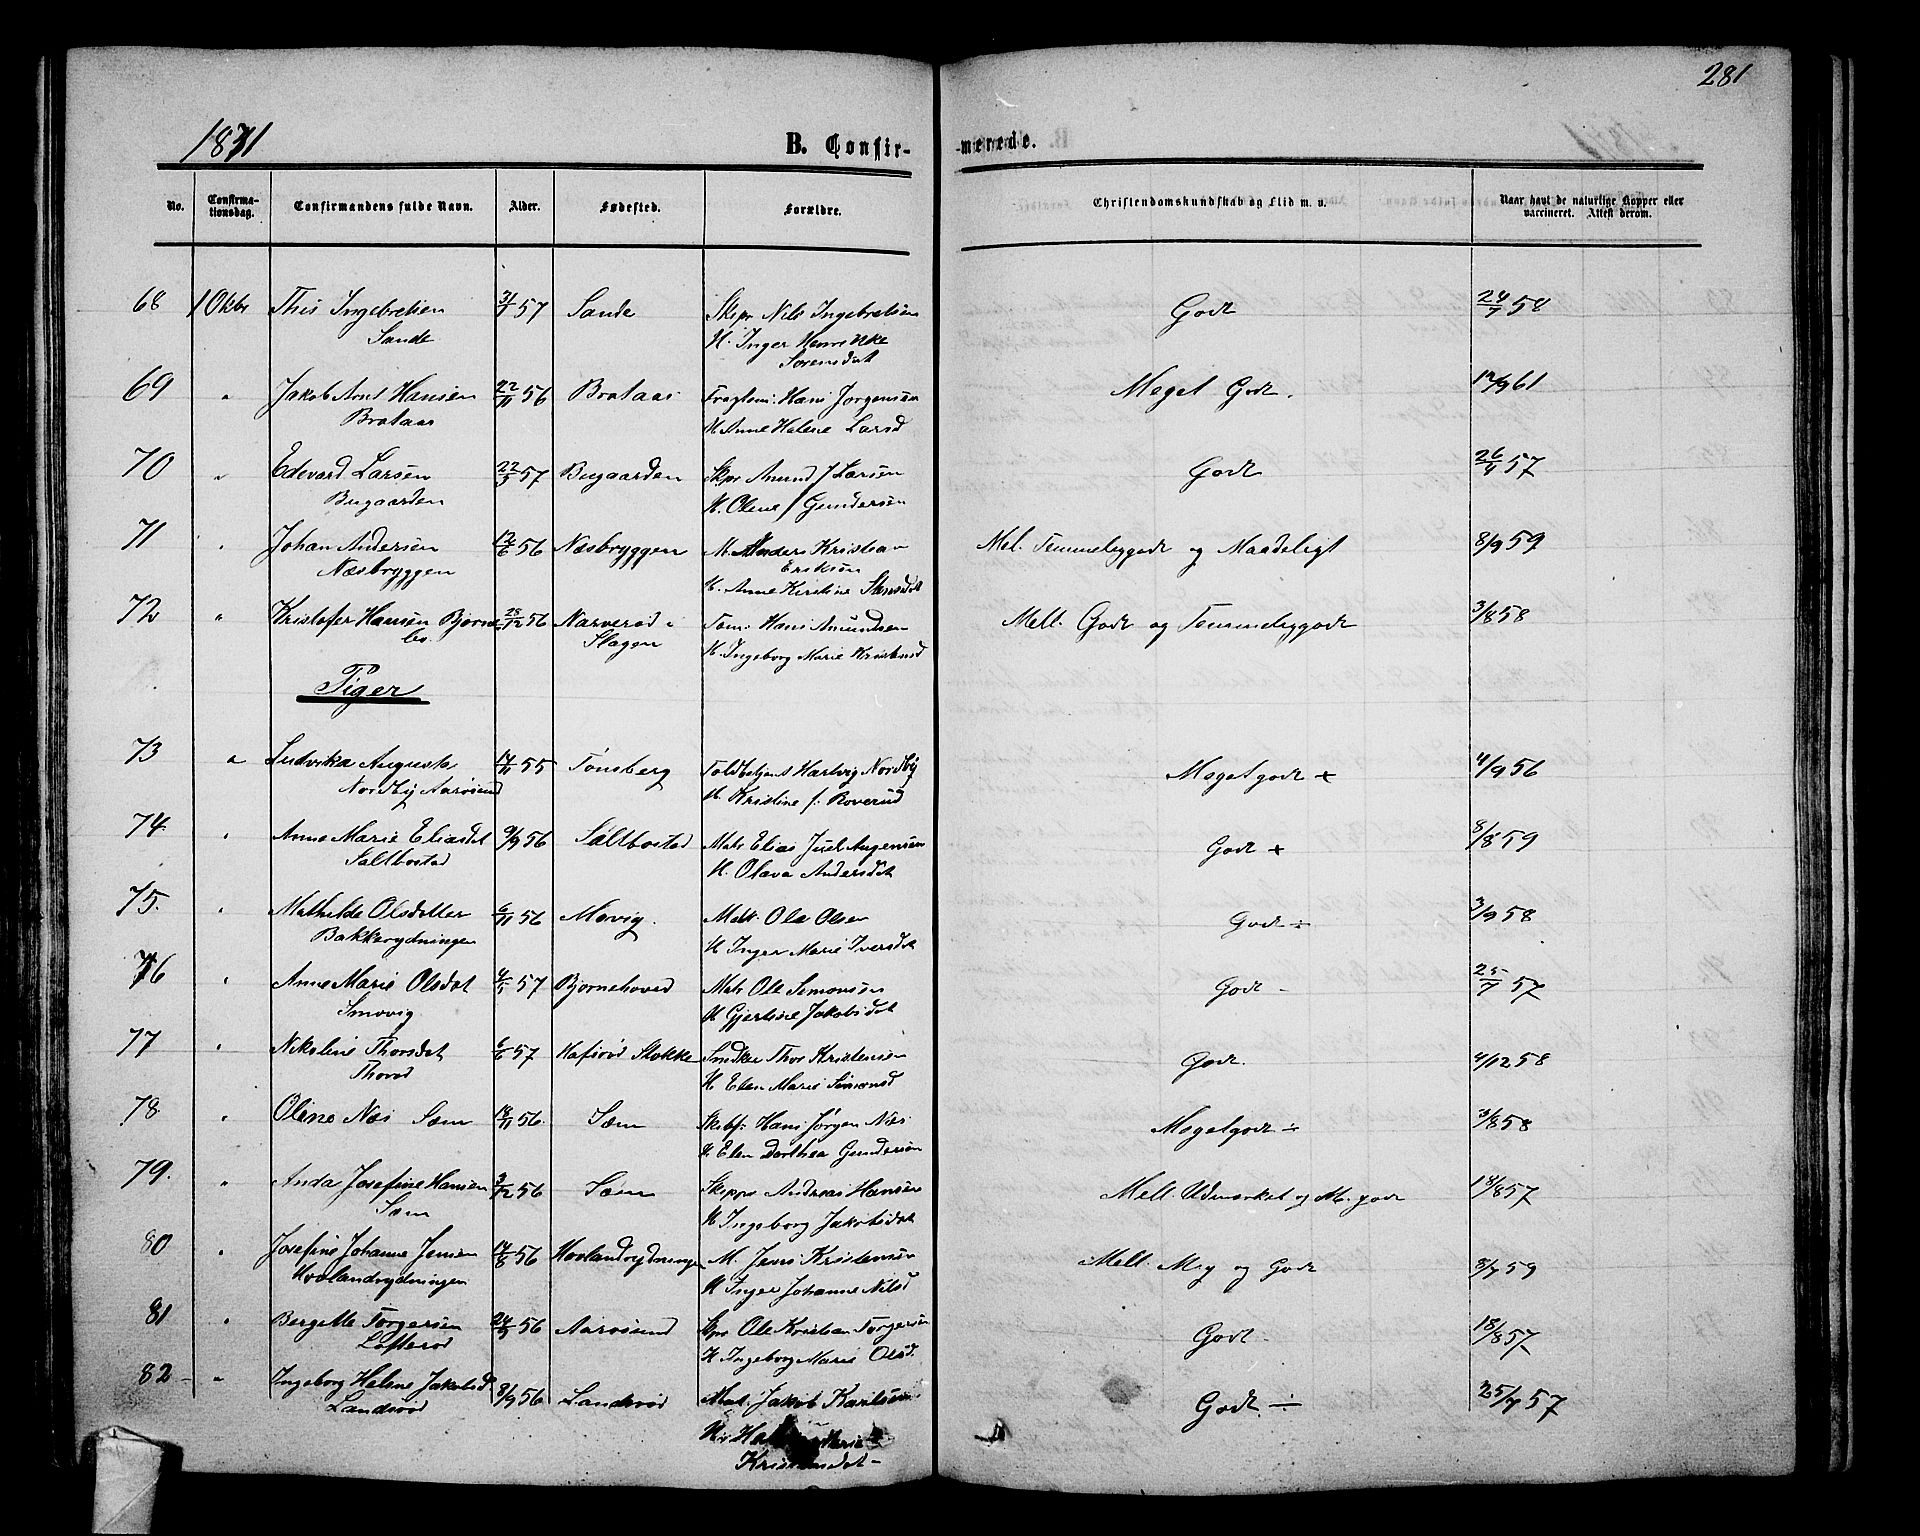 281
1871 B. Confir- -merede.
No. Confirmationsdag. Confirmandens fulde Navn. Alder. Fødested. Forældre. Christendomskundskab og Flid m. v. Naar havt de naturlige Kopper eller vaccineret. Attest derom.
68 1 Oktbr This Ingebretsen 3/7 57 Sande Skpr Nils Ingebretsen Godt 24/7 58
Sande H. Inger Henrikke
Sørensdat
69 " Jakob Arnt Hansen 22/11 56 Brataas Hans Jørgensen Meget Godt. 12/9 61
Brataas H. Anne Helene Larsd
70 " Edevard Larsen 22/3 57 Bugaarden Skpr Amund Larsen Godt 26/4 57
Bugaarden H. Olene Gundersen
71 " Johan Andersen 12/6 56 Næsbryggen M. Anders Kristian Mel. Temmeliggodt og Maadeligt 8/9 59
Næsbryggen Eriksen
H. Anne Kirstine
72 " Kristofer Hansen Bjørne- 28/12 56 Narverød i Tom. Hans Amundsen Mell. Godt og Temmeliggodt 3/8 58
bo. Slagen H. Ingeborg Marie Kristensd
Piger
73 " Ludvika Augusta 17/11 55 Tønsberg Toldbetjent Hartvig Nordby Megetgodt + 4/9 56
Nordby Aarøsund H. Kristine f. Boverud
74. " Anne Marie Eliasdat 9/9 56 Saltbostad Matr Elias Juel Godt + 8/8 59
Saltbostad H. Olava Andersdat
75. " Mathilde Olsdatter 6/11 56 Movig. Matr. Ole Olsen Godt ÷ 3/9 58
Bakkerydningen H Inger Marie Iversdat
76 " Anne Marie Olsdat 4/5 57 Bjørnehoved Matr Ole Simonsen Godt - 25/7 57
Smovig H Gjertine Jakobsdat
77 " Nikoline Thorsdat 6/6 57 Hafsrød Stokke Snedker Thor Kristensen Godt. 4/12 58
Thorød H Elen Marie Simonsd
78. " Oline Næs Sæm 18/11 56. Sæm Skibsf. Hans Jørgen Næs Megetgodt ÷ 3/8 58
H. Elen Dorthea Gundersen
79. " Anda Josefine Hansen 3/12 56 Sæm Skippr Andreas Hansen Mell. Udmærket og M. godt 18/8 57
Sæm H Ingeborg Jakobsdat
80 " Josefine Johanne Jensen 14/8 56 Hovlandrydninge M. Jens Kristensen Mell. Meg og Godt 8/7 59
Hovlandrydningen H Inger Johanne Nilsd
81 " Bergitte Torgersen 24/5 56 Aarøsund Skpr Ole Kristian Torgersen Godt - 18/8 57
Lofterød H Ingeborg Marie Olsd.
82 - " Ingeborg Helene Jakobsd 8/9 56 Landsrød Mat. Jakob Karilsen Godt. ÷ 25/7 57
Landsrød H. Marie
Kristensdat -